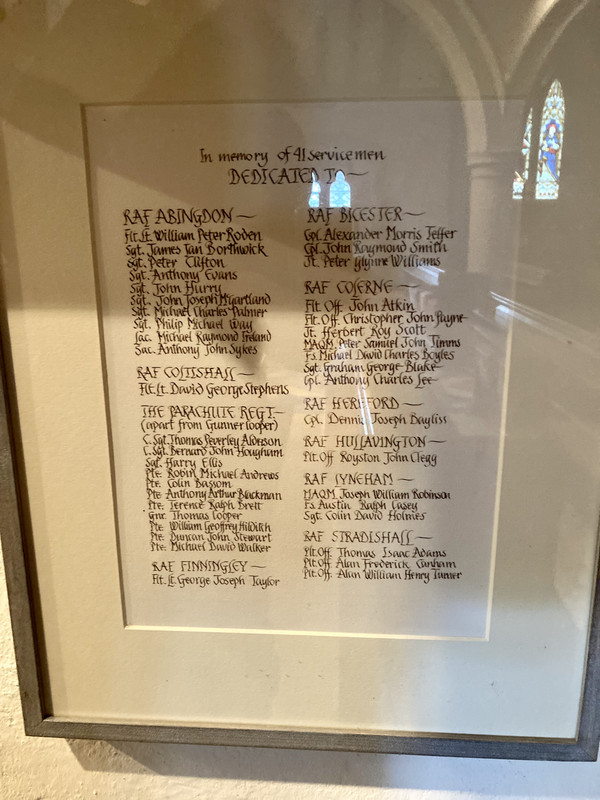 In memory of 41 servicemen
DEDICATED TO
RAF ABINGDON
Flt. Lt. William Peter Roden
Sgt. James Ian Borthwick
Sgt. Peter Clifton
Sgt. Anthony Evans
Sgt. John Hurry
Sgt. John Joseph McGartland
Sgt. Michael Charles Palmer
Sgt. Philip Michael Way
Lac. Michael Raymond Ireland
Sac. Anthony John Sykes
RAF COLTISHALL
Flt. Lt. David George Stephens
THE PARACHUTE REGT.
(apart from Gunner Cooper)
C. Sgt. Thomas Beverley Alderson
C. Sgt. Bernard John Hougham
Sgt. Harry Ellis
Pte. Robin Michael Andrews
Pte. Colin Bassom
Pte. Anthony Arthur Blackman
Pte. Terence Ralph Brett
Gnr. Thomas Cooper
Pte. William Geoffrey Hilditch
Pte. Duncan John Stewart
Pte. Michael David Walker
RAF FINNINGLEY
Flt. Lt. George Joseph Taylor
RAF BICESTER
Cpl. Alexander Morris Telfer
Cpl. John Raymond Smith
Jt. Peter Glynne Williams
RAF COSFERNE
Flt. Off. John Atkin
Flt. Off. Christopher John Payne
Jt. Herbert Roy Scott
MAQM. Peter Samuel John Timms
Fs. Michael David Charles Boyles
Sgt. Graham George Blake
Cpl. Anthony Charles Lee
RAF HEREFORD
Cpl. Dennis Joseph Bayliss
RAF HULLAVINGTON
Plt. Off Royston John Clegg
RAF LYNEHAM
MAQM. Joseph William Robinson
Fs. Austin Ralph Casey
Sgt. Colin David Holmes
RAF STRADISHALL
Plt. Off. Thomas Isaac Adams
Plt. Off. Alan Frederick Canham
Plt. Off. Alan William Henry Turner